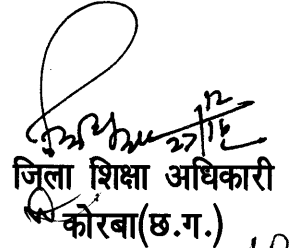 27/12/16
जिला शिक्षा अधिकारी
कोरबा(छ.ग.)